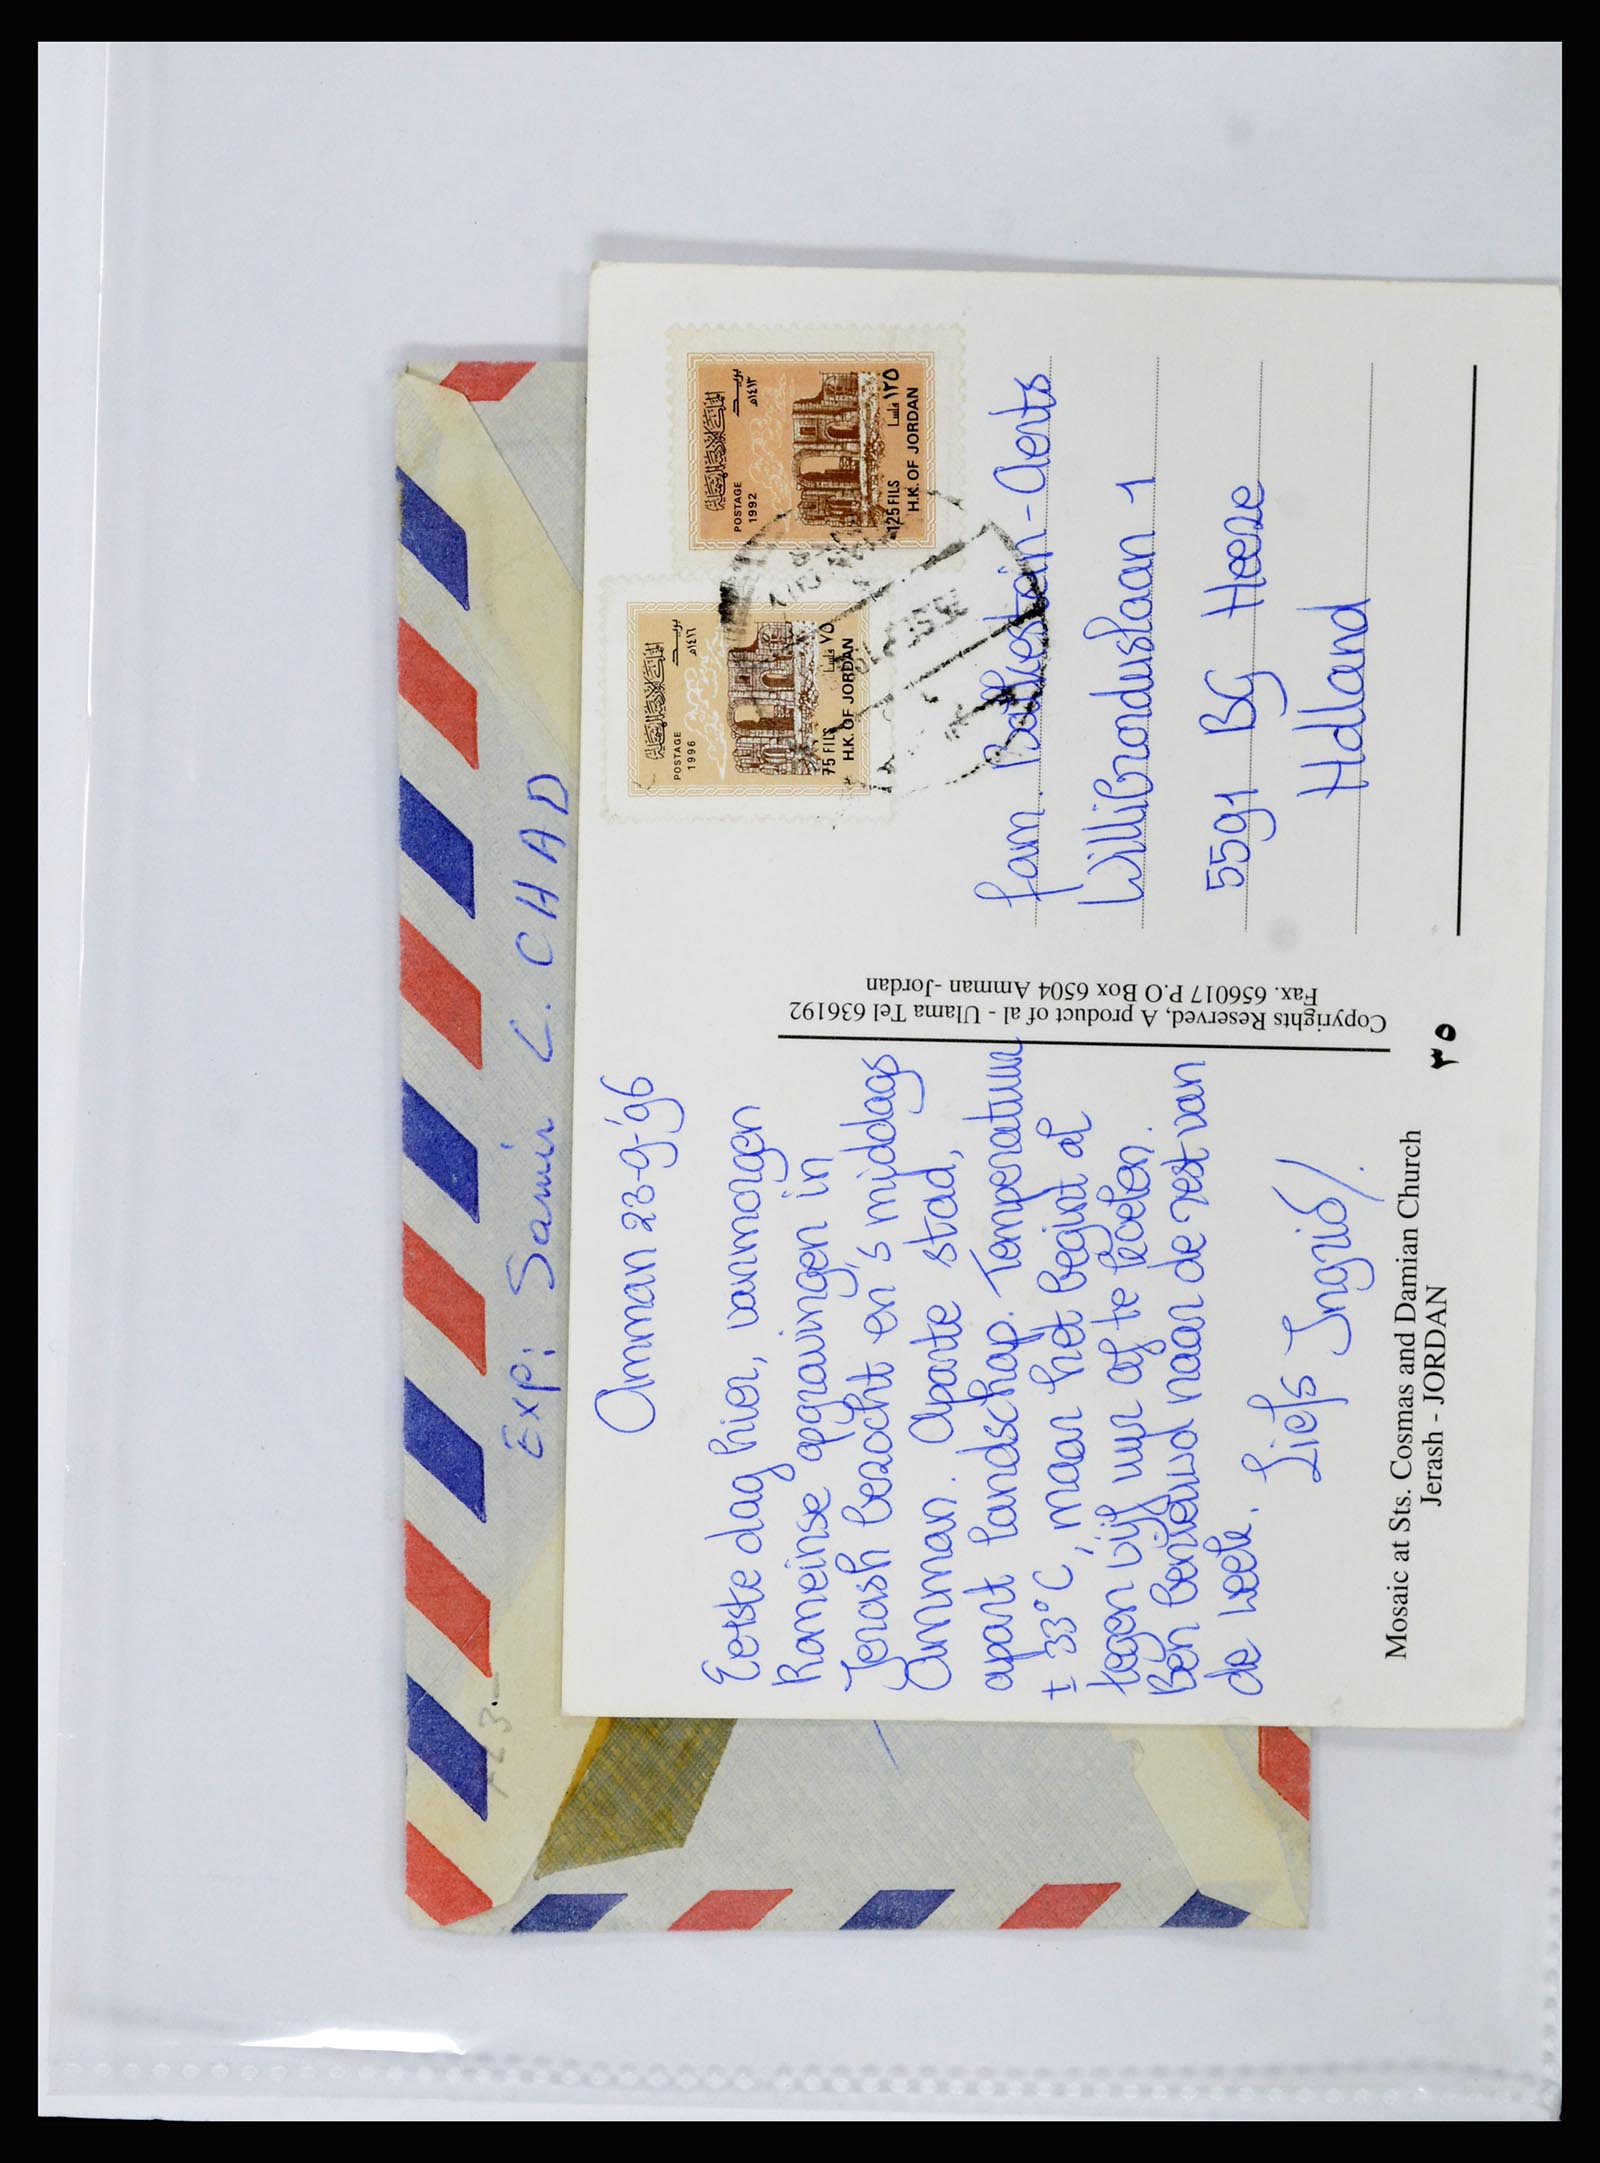 Exp: Samir L. CHAD
23.-
Amman 23-9-'96
Eerste dag hier, vanmorgen
Romeinse opgravingen in
Jerash bezocht en 's middags
Amman. Aparte stad,
apart landschap. Temperatuur
± 33°C, maar het begint al
tegen vijf uur af te koelen.
Ben benieuwd naar de rest van
de week.
Liefs Ingrid/.
Mosaic at Sts. Cosmas and Damian Church
Jerash - JORDAN
٣٥
Copyrights Reserved, A product of al - Ulama Tel 636192
Fax. 656017 P.O Box 6504 Amman -Jordan
المملكة الأردنية الهاشمية
بريد
١٤١٦هـ
POSTAGE
1996
٧٥ فلسا
75 FILS
H.K. OF JORDAN
المملكة الأردنية الهاشمية
بريد
١٤١٣هـ
POSTAGE
1992
١٢٥ فلسا
125 FILS
H.K. OF JORDAN
fam. -Aerts
Willibrorduslaan 1
5591 BG Heeze
Holland